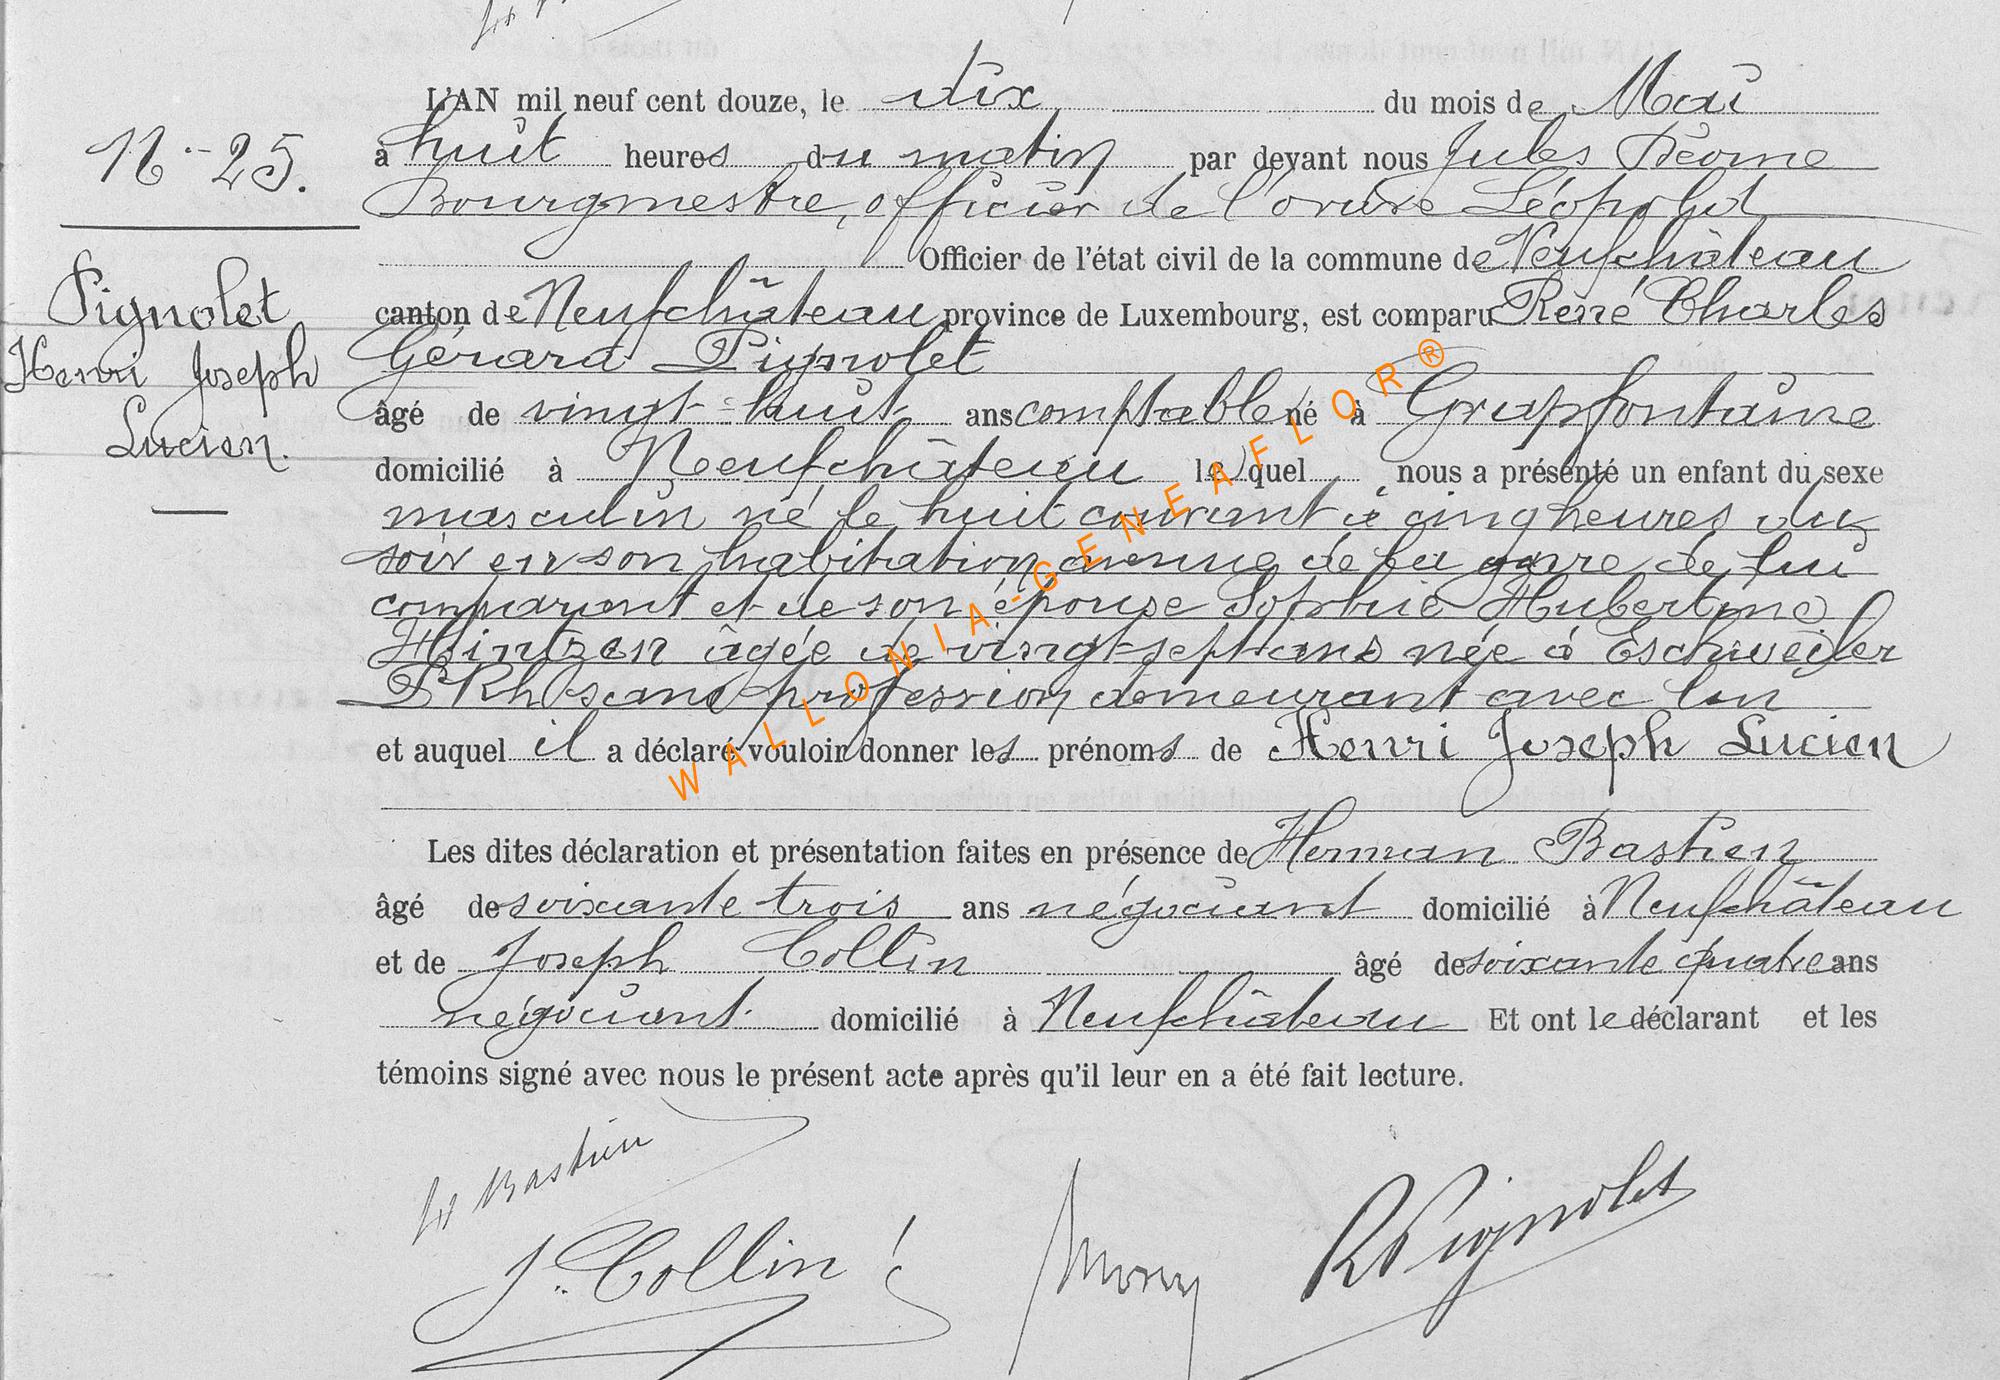 N° - 25.
Pignolet
Henri Joseph
Lucien.
L'AN mil neuf cent douze, le dix du mois de Mai
à huit heures du matin par devant nous Jules
Bourgmestre, officier de l'ordre Léopold
Officier de l'état civil de la commune de Neufchâteau
canton de Neufchâteau province de Luxembourg, est comparu René Charles
Gérard Pignolet
âgé de vingt-huit ans comptable né à Grapfontaine
domicilié à Neufchâteau lequel nous a présenté un enfant du sexe
masculin né le huit courant à cinq heures du
soir en son habitation avenue de la gare de lui
comparant et de son épouse Sophie Hubertine
Hintzen âgée de vingt-sept ans née à Eschweiler
P. Rh. sans profession demeurant avec lui
et auquel il a déclaré vouloir donner les prénoms de Henri Joseph Lucien
Les dites déclaration et présentation faites en présence de Herman Bastien
âgé de soixante trois ans négociant domicilié à Neufchâteau
et de Joseph Collin âgé de soixante quatre ans
négociant domicilié à Neufchâteau Et ont le déclarant et les
témoins signé avec nous le présent acte après qu'il leur en a été fait lecture.
Bastien
J. Collin
R Pignolet
WALLONIA-GENEAFLOR®